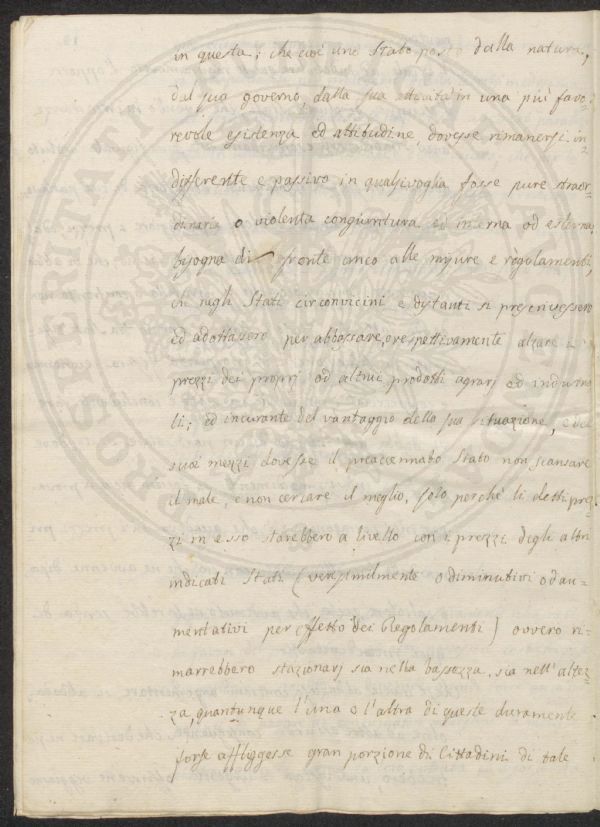 in questa; che cioè uno Stato posto dalla natura,
dal suo governo, dalla sua attività in una più favo=
revole esistenza ed attitudine, dovesse rimanersi in=
differente e passivo in qualsivoglia fosse pure straor=
dinaria o violenta congiuntura ed interna od esterna
bisogna di fronte anco alle misure e regolamenti,
che negli Stati circonvicini e distanti si prescrivessero
ed adottassero per abbassare, o respettivamente alzare i
prezzi dei proprj od altrui prodotti agrarj od industria
li; ed incurante del vantaggio della sua situazione, e dei
suoi mezzi dovesse il preaccennato Stato non scansare
il male, e non cercare il meglio, solo perchè li detti prez=
zi in esso starebbero a livello con i prezzi degli altri
indicati Stati (verisimilmente o diminutivi od au=
mentativi per effetto dei Regolamenti) ovvero ri=
marrebbero stazionarj sia nella bassezza, sia nell'altez=
za, quantunque l'una o l'altra di queste duramente
forse affliggesse gran porzione di Cittadini di tale
PROSPERITATI